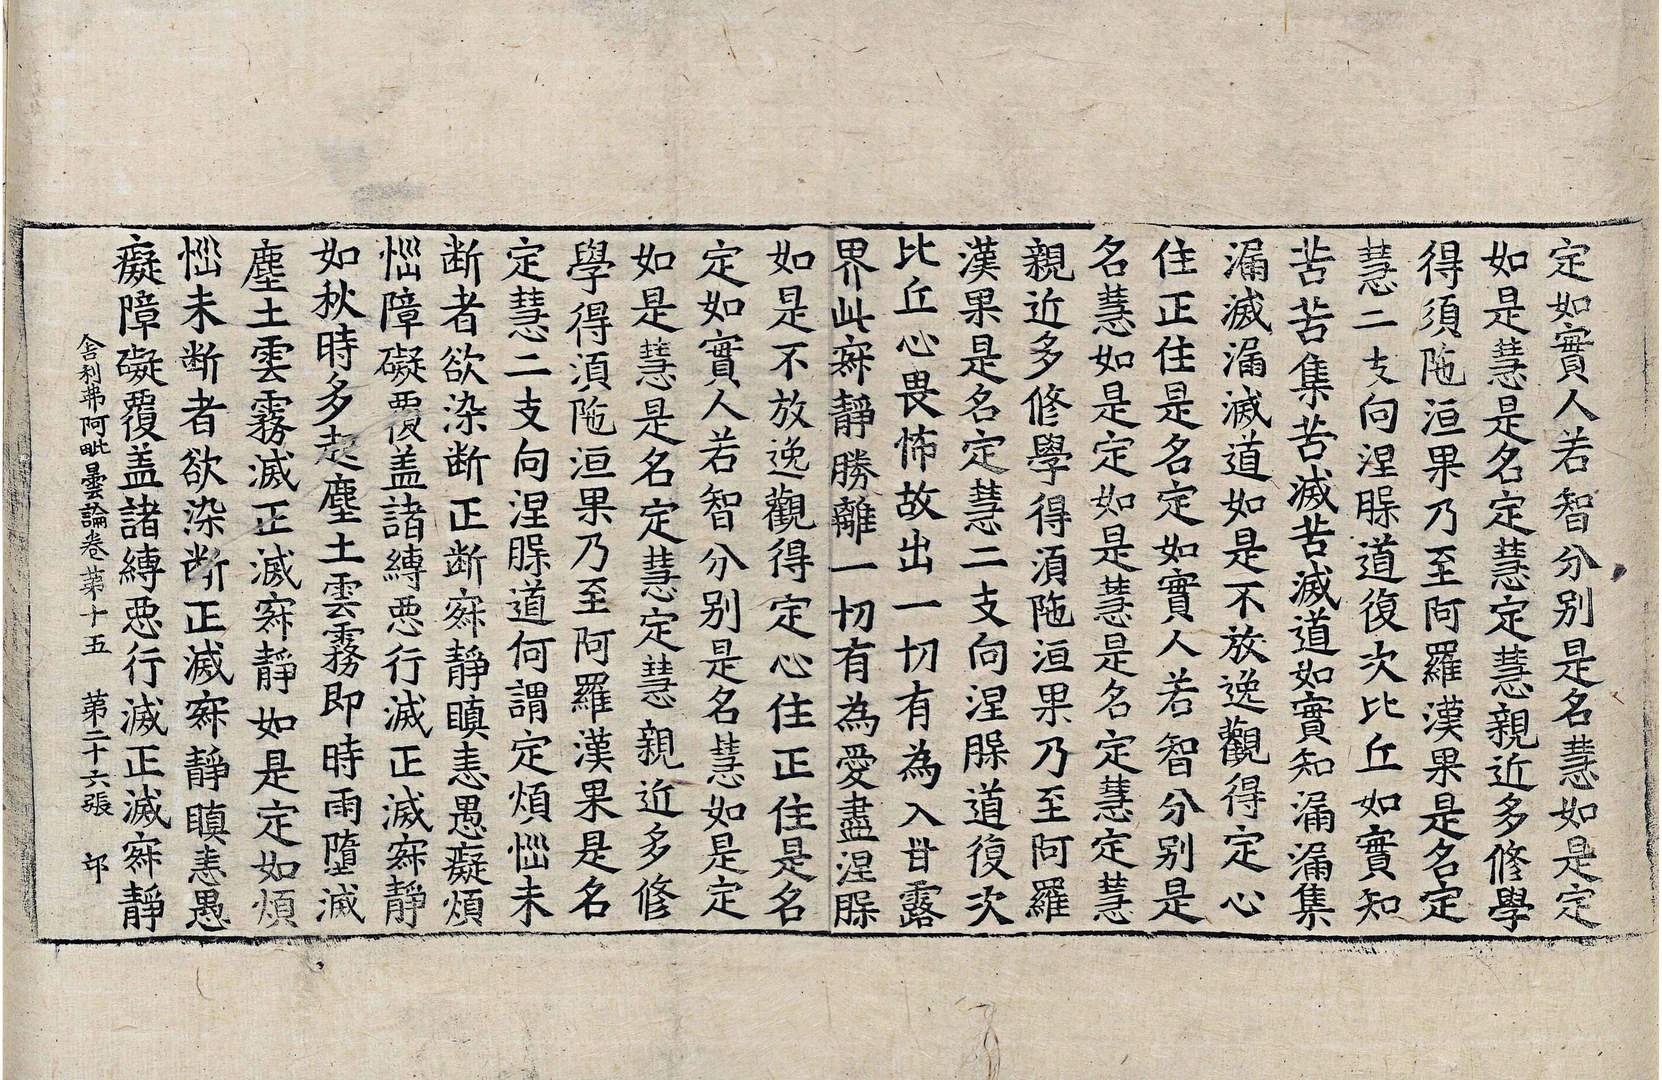 定如實人若智分別是名慧如是定
如是慧是名定慧定慧親近多修學
得須陁洹果乃至阿羅漢果是名定
慧二支向涅槃道復次比丘如實知
苦苦集苦滅苦滅道如實知漏漏集
漏滅漏滅道如是不放逸觀得定心
住正住是名定如實人若智分別是
名慧如是定如是慧是名定慧定慧
親近多修學得湏陁洹果乃至阿羅
漢果是名定慧二支向涅槃道復次
比丘心畏怖故出一切有為入甘露
界此寂靜勝離一切有為愛盡涅槃
如是不放逸觀得定心住正住是名
定如實人若智分别是名慧如是定
如是慧是名定慧定慧親近多修
學得湏陁洹果乃至阿羅漢果是名
定慧二支向涅槃道何謂定煩惱未
断者欲染断正断寂靜瞋恚愚癡煩
惱障礙覆盖諸縛惡行滅正滅寂靜
如秋時多起塵土雲霧即時雨墮滅
塵土雲霧滅正滅寂靜如是定如煩
惱未断者欲染断正滅寂靜瞋恚愚
癡障礙覆盖諸縛惡行滅正滅寂靜
舍利弗阿毗曇論卷第十五 第二十六張 邙